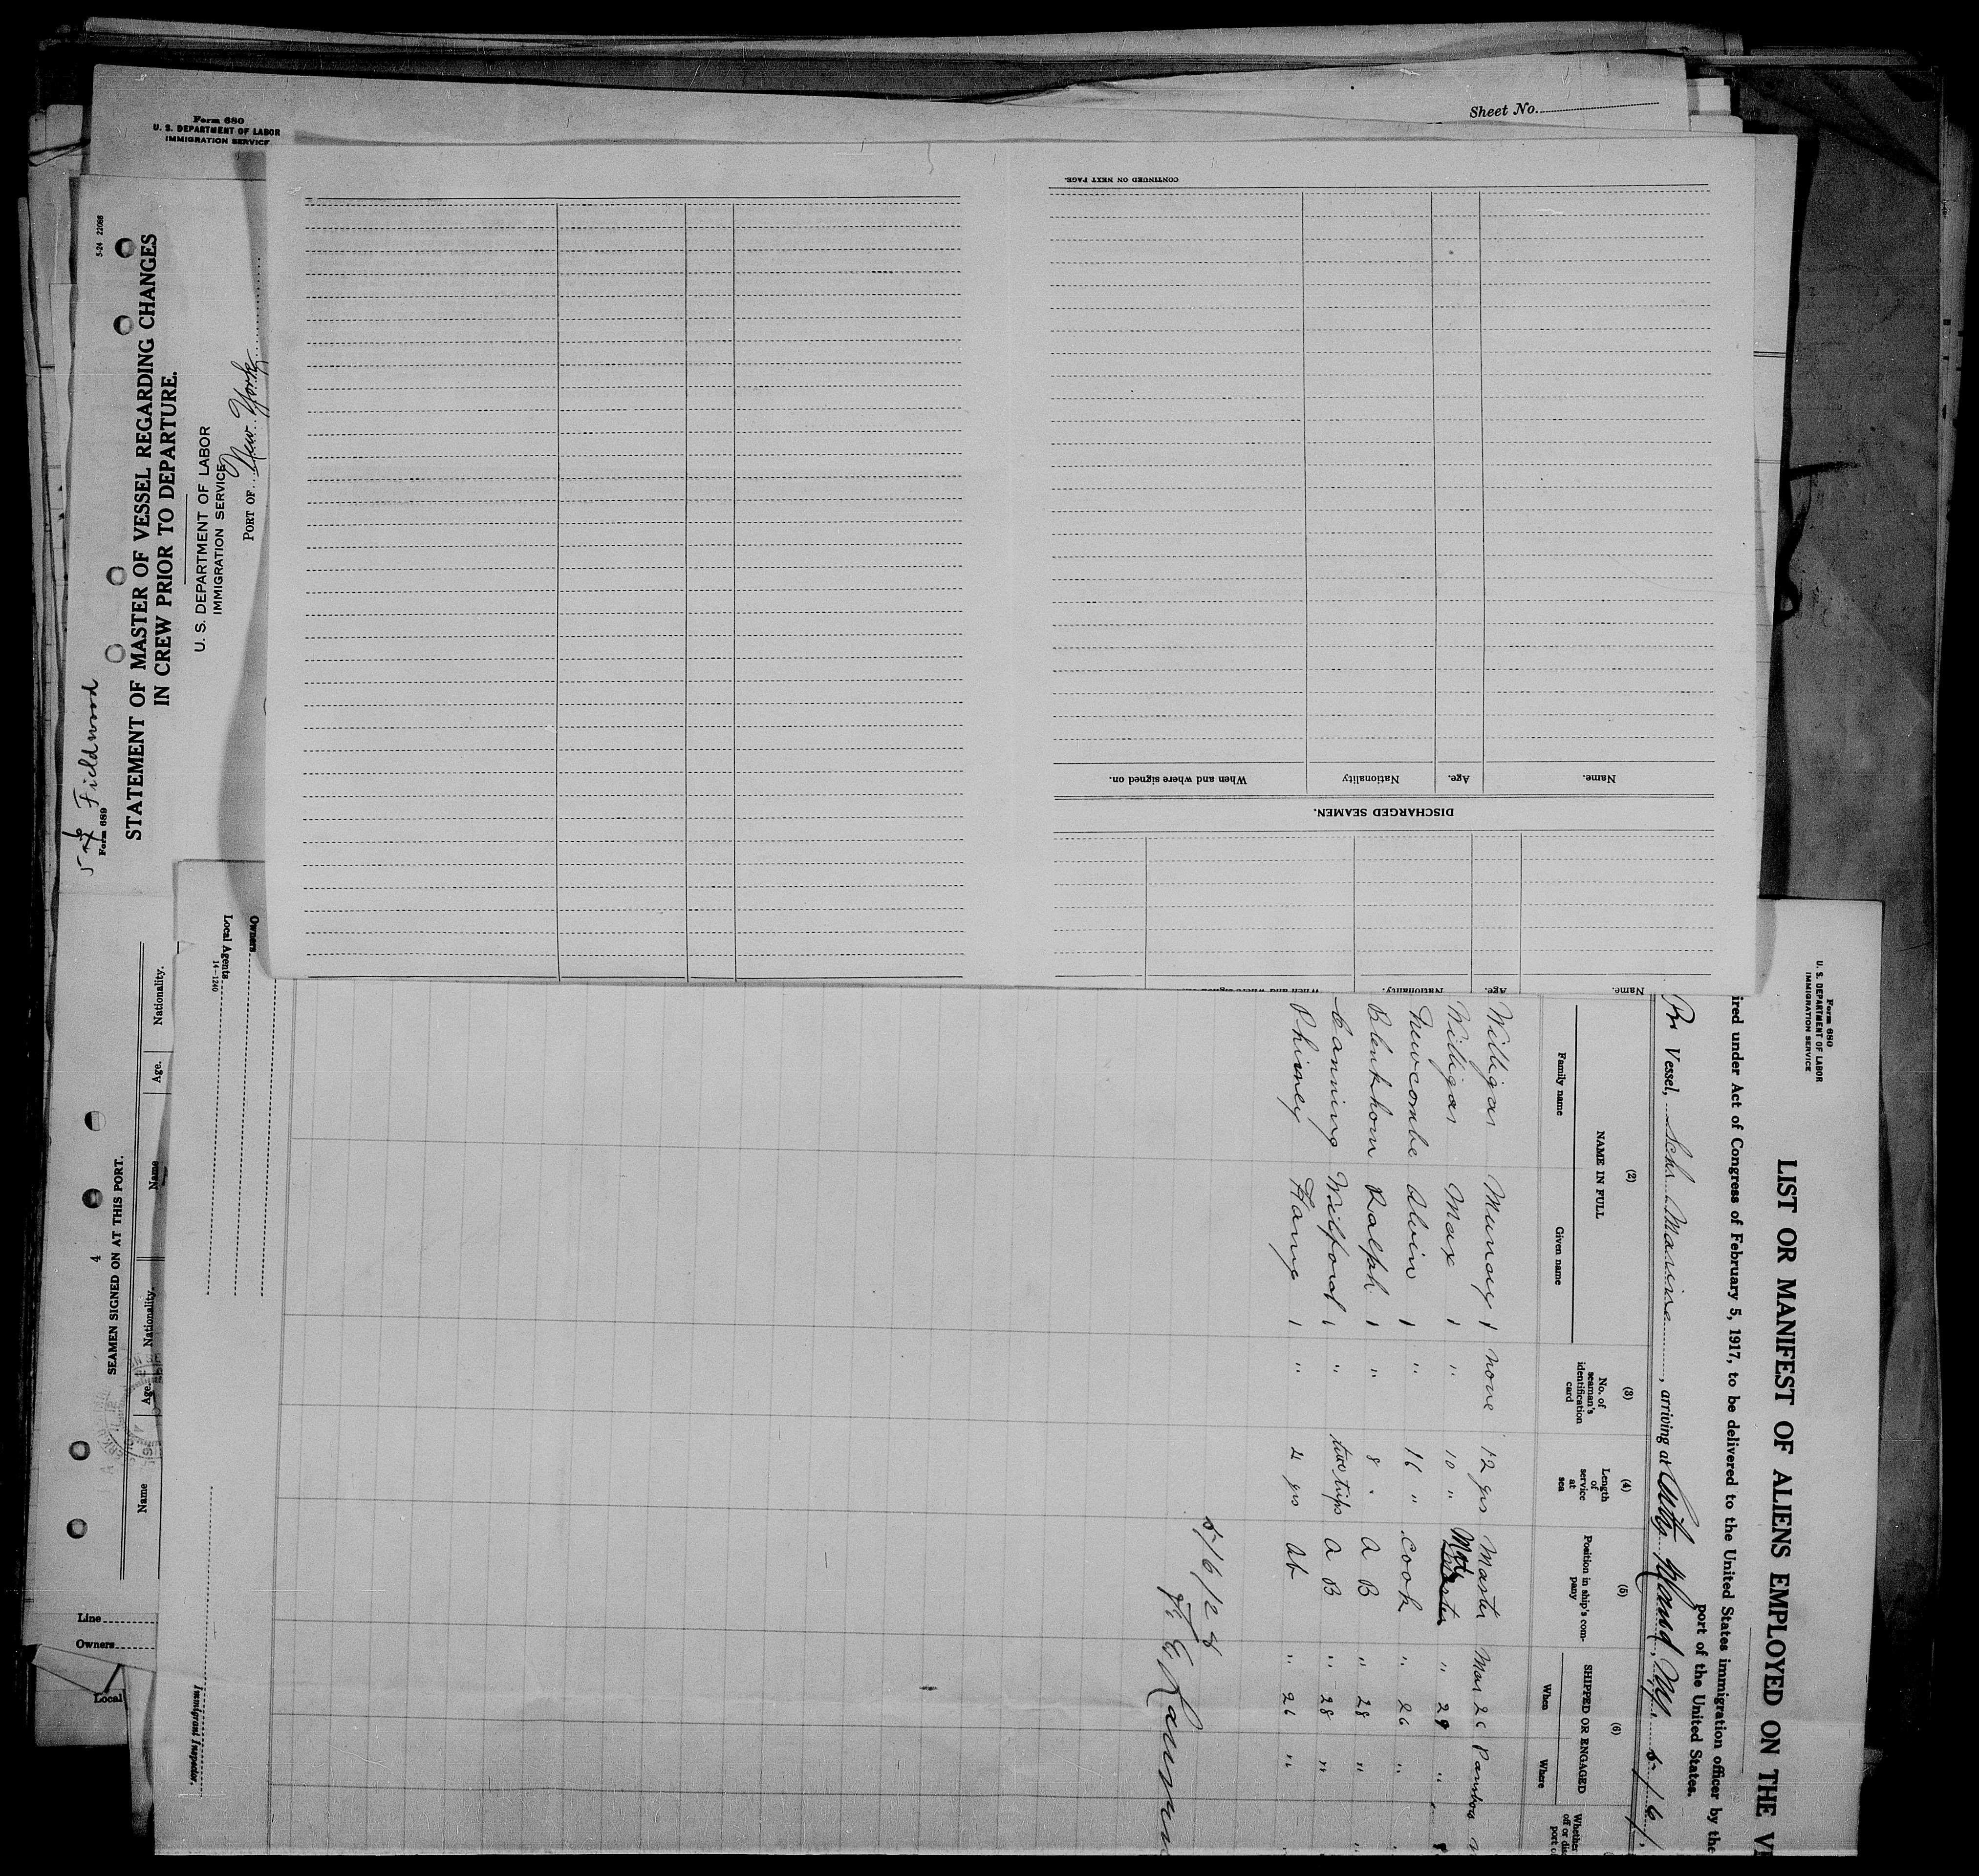 Sheet No.
Form 680
U. S. DEPARTMENT OF LABOR
IMMIGRATION SERVICE
5-24 22068
5-6 Fieldwood
Form 689
STATEMENT OF MASTER OF VESSEL REGARDING CHANGES
IN CREW PRIOR TO DEPARTURE.
U. S. DEPARTMENT OF LABOR
IMMIGRATION SERVICE
PORT OF New York
CONTINUED ON NEXT PAGE.
When and where signed on. Nationality Age. Name.
DISCHARGED SEAMEN.
When and where signed Nationality. Age. Name.
Nationality. Age. Name Nationality. Age. Name
4
SEAMEN SIGNED ON AT THIS PORT.
Line
Owners
Local
Owners
Local Agents
14-1240
Immigrant Inspector.
Form 680
U. S. DEPARTMENT OF LABOR
IMMIGRATION SERVICE
LIST OR MANIFEST OF ALIENS EMPLOYED ON THE
ired under Act of Congress of February 5, 1917, to be delivered to the United States immigration officer by the
port of the United States.
Br Vessel, Schr. arriving at City Island, N.Y. 5/6/
(2) (3) (4) (5) (6)
NAME IN FULL
Family name Given name
No. of seaman's identification card
Length of service at sea
Position in ship's company
SHIPPED OR ENGAGED
When Where
Whether
off or dis
port
Willigar 1 none 12 yrs Master Mar 26
Willigar Max 1 " 10 " Mate " 29 "
Newcombe Alvin 1 " 16 " Cook " 26 "
Blenkhorn Ralph 1 " 8 " A B " 28 "
Canning Wilford 1 " two trips A B " 28 "
Phinney 1 " 4 yrs " 26 "
5/6/28